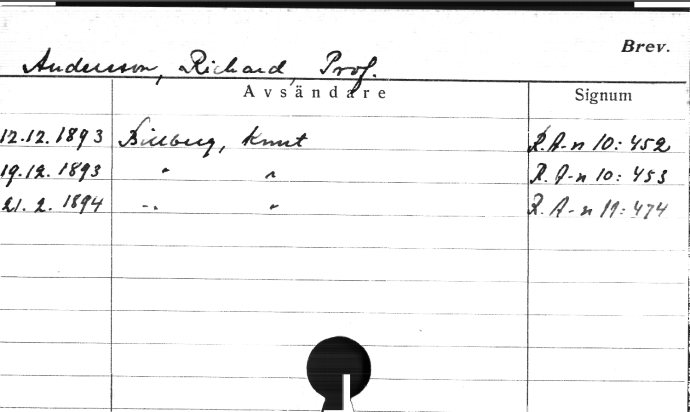 Brev.
Andersson, Richard, Prof.
Avsändare Signum
12.12.1893 Billberg, Knut R.A-n 10:452
19.12.1893 " " R.A-n 10:453
21.2.1894 -"- " R.A-n 11:474